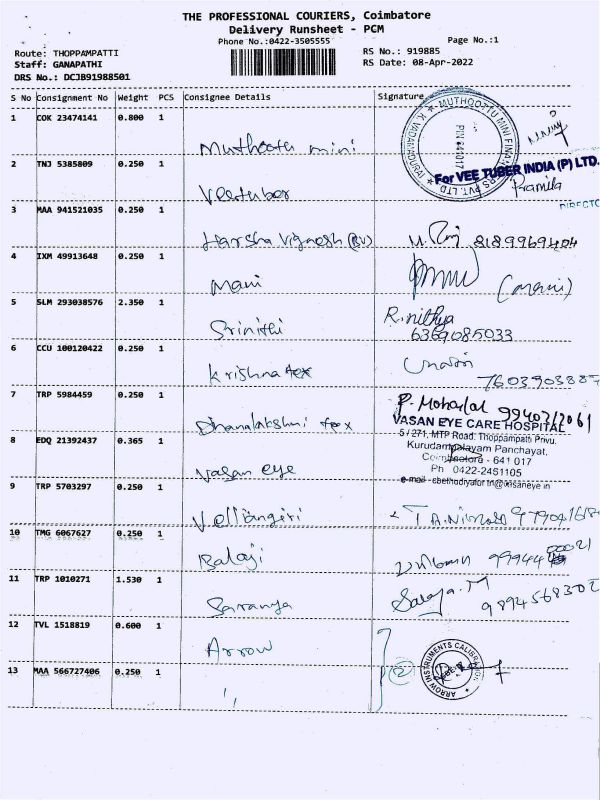 THE PROFESSIONAL COURIERS, Coimbatore
Delivery Runsheet - PCM
Phone No.:0422-3505555 Page No.:1
Route: THOPPAMPATTI RS No.: 919885
Staff: GANAPATHI RS Date: 08-Apr-2022
DRS No.: DCJB91988501
S No Consignment No Weight PCS Consignee Details Signature
1 COK 23474141 0.800 1
Muthoottu mini
K. VADAMADURAI MUTHOOTTU MINI FINANCIERS PVT. LTD
PIN 641017
2 TNJ 5385809 0.250 1
Veetuber
For VEE TUBER INDIA (P) LTD.
Pramila
DIRECTO
3 MAA 941521035 0.250 1
Harsha Vignesh (BV) 8189969404
4 IXM 49913648 0.250 1
Mani (mani)
5 SLM 293038576 2.350 1
Srinithi R. nithya
6369085033
6 CCU 100120422 0.250 1
Krishna tex
7603903887
7 TRP 5984459 0.250 1
Dhanalakshmi tex P. Mohanlal 9940312061
8 EDQ 21392437 0.365 1
Vasan eye
VASAN EYE CARE HOSPITAL
5 / 271, MTP Road, Thoppampatti Privu,
Kurudampalayam Panchayat,
Coimbatore - 641 017
Ph 0422-2451105
9 TRP 5703297 0.250 1
Vellangiri
10 TMG 6067627 0.250 1
Balaji
11 TRP 1010271 1.530 1
Saranya 9894568302
12 TVL 1518819 0.600 1
Arrow
ARROW INSTRUMENTS CALIBRATION
13 MAA 566727406 0.250 1
,, 2